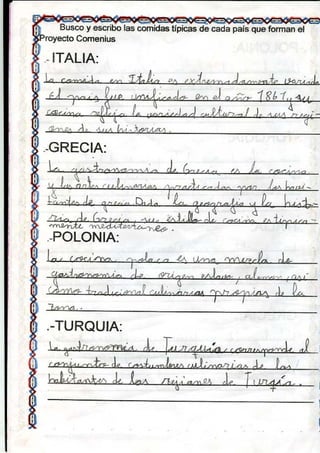 Busco y escribo las comidas típicas de cada país que forman el
Proyecto Comenius
.- ITALIA:
La comida en Italia es extremadamente variada
El país fue unificado en el año 1861, y su
cocina refleja la variedad cultural de sus regi-
ones de sus historias.
.-GRECIA:
La gastronomía de Grecia es la cocina
y las artes culinarias practicadas por los habi-
tantes de grecia Dada la geografía y la histo-
ria de Grecia, su estilo de cocina es típica-
mente mediterraneo.
.-POLONIA:
La cocina polaca es una mezcla de
gastronomía de origen eslavo, aleman, así
como tradicional culinarias propias de la
zona.
.-TURQUIA:
La gastronomía de Turquía, corresponde al
conjunto de costumbres culinarias de los
habitantes de las regiones de Turquía.